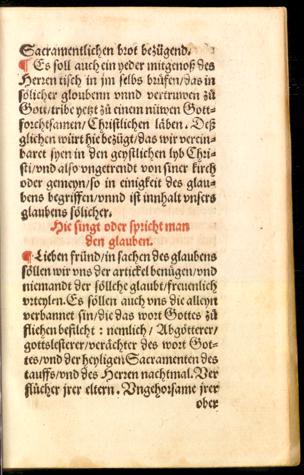 Sacramentlichen brot bezügend.
¶ Es soll auch ein yeder mitgnoß des
Herren tisch in jm selbs brüfen/das in
sölicher gloubenn vnnd vertruwen zů
Gott/tribe yetz zů einem nüwen Gott-
forchtsamen/Christlichen läben. Deß
glichen würt hie bezügt/das wir verein-
baret syen in den geystlichen lyb Chri-
sti/vnd also vngetrendt von siner kirch
oder gemeyn/so in einigkeit des glau-
bens begriffen/vnnd ist innhalt vnsers
glaubens sölicher.
Hie singt oder spricht man
den glauben.
¶ Lieben fründ/in sachen des glaubens
söllen wir vns der artickel benügen/vnd
niemandt der söllche glaubt/freuenlich
vrteylen. Es söllen auch vns die alleyn
verbannet sin/die das wort Gottes zů
fliehen befilcht : nemlich/ Abgötterer/
gottslesterer/verächter des wort Got-
tes/vnd der heyligen Sacramenten des
tauffs/vnd des Herren nachtmal. Ver
flůcher jrer eltern. Vngehorsame jrer
ober